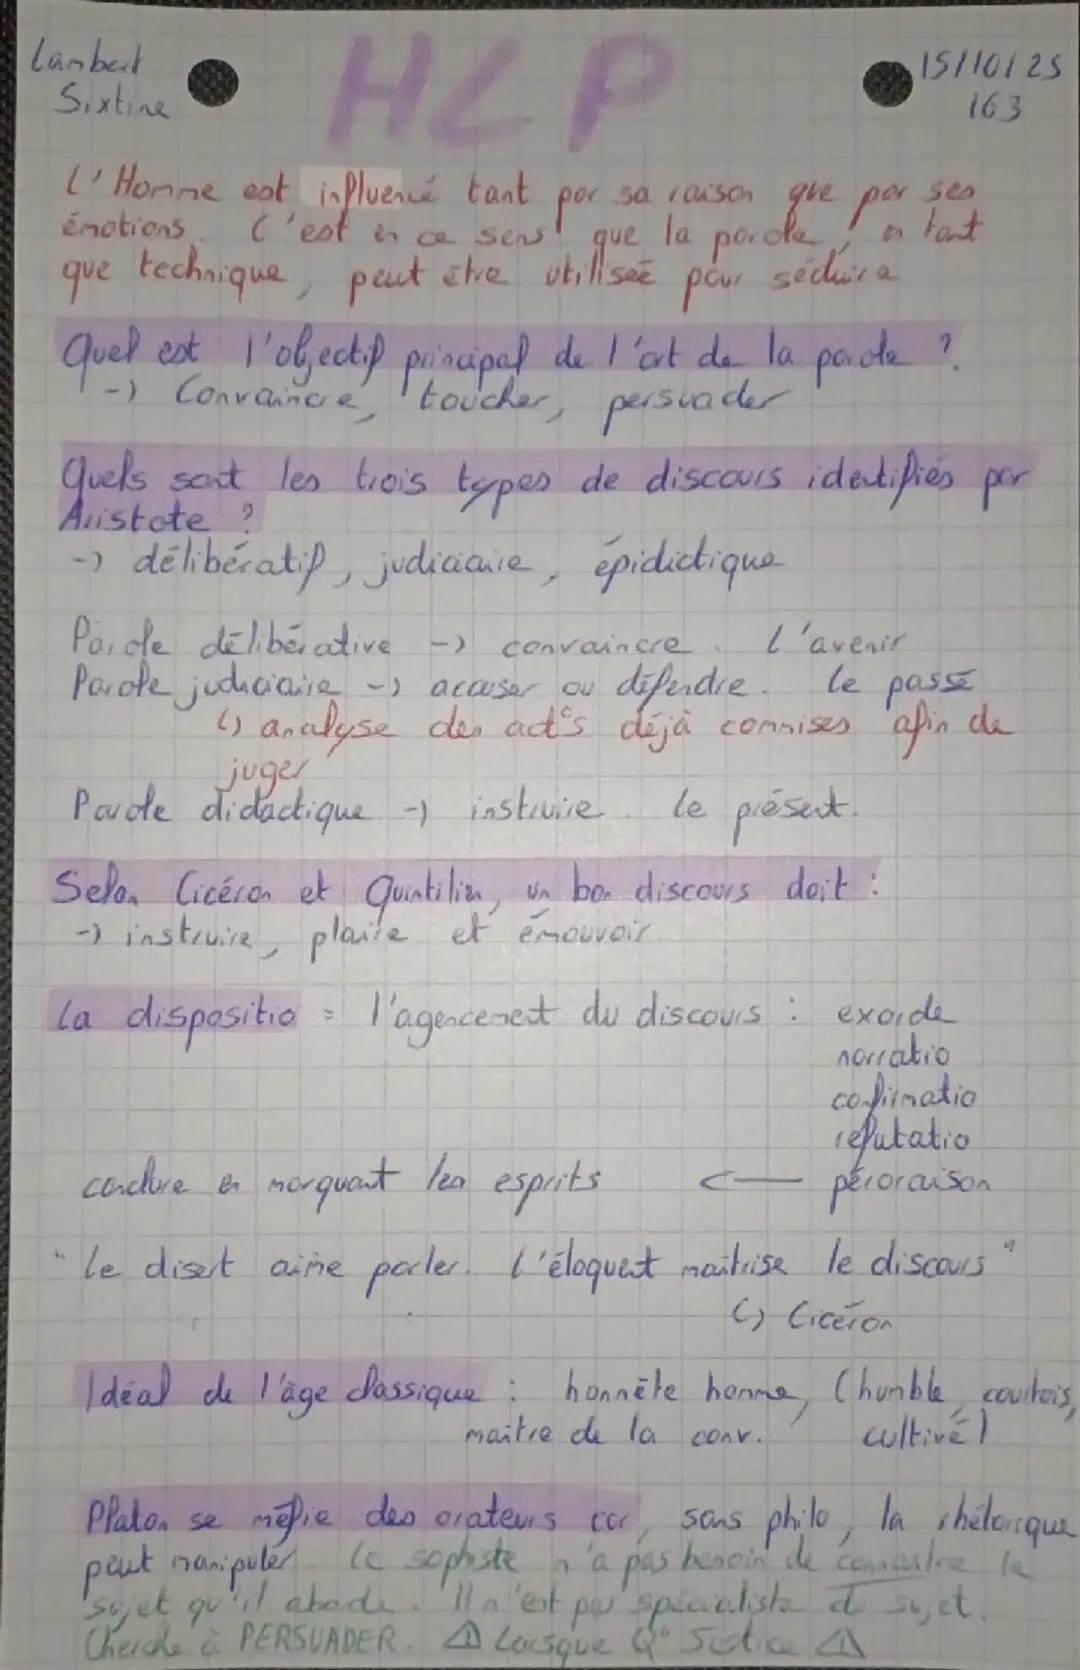 Lambert
Sixtine
HLP
15/10/25
163
L'Homme est influencé tant par sa raison que par ses
émotions. C'est en ce sens que la parole, en tant
que technique, peut être utilisée pour séduire
Quel est l'objectif principal de l'art de la parole ?
-) Convaincre, toucher, persuader
Quels sont les trois types de discours identifiés par
Aristote ?
-) délibératif, judiciaire, épidictique
Parole délibérative -) convaincre. L'avenir
Parole judiciaire -) accuser ou défendre. Le passé
↳ analyse des acts déjà commises afin de
juger
Parole didactique -) instruire. Le présent.
Selon Cicéron et Quintilien, un bon discours doit :
-) instruire, plaire et émouvoir
La dispositio = l'agencement du discours : exorde
narratio
confirmatio
refutatio
conclure en marquant les esprits <— péroraison
"Le disert aime parler. L'éloquent maîtrise le discours"
↳ Cicéron
Idéal de l'âge classique : honnête homme, (humble, courtois,
maître de la conv. cultivé)
Platon se méfie des orateurs car, sans philo, la rhétorique
peut manipuler. Le sophiste n'a pas besoin de connaître le
sujet qu'il aborde. Il n'est pas spécialiste du sujet.
Cherche à PERSUADER. ⚠ Lorsque Q° Justice ⚠